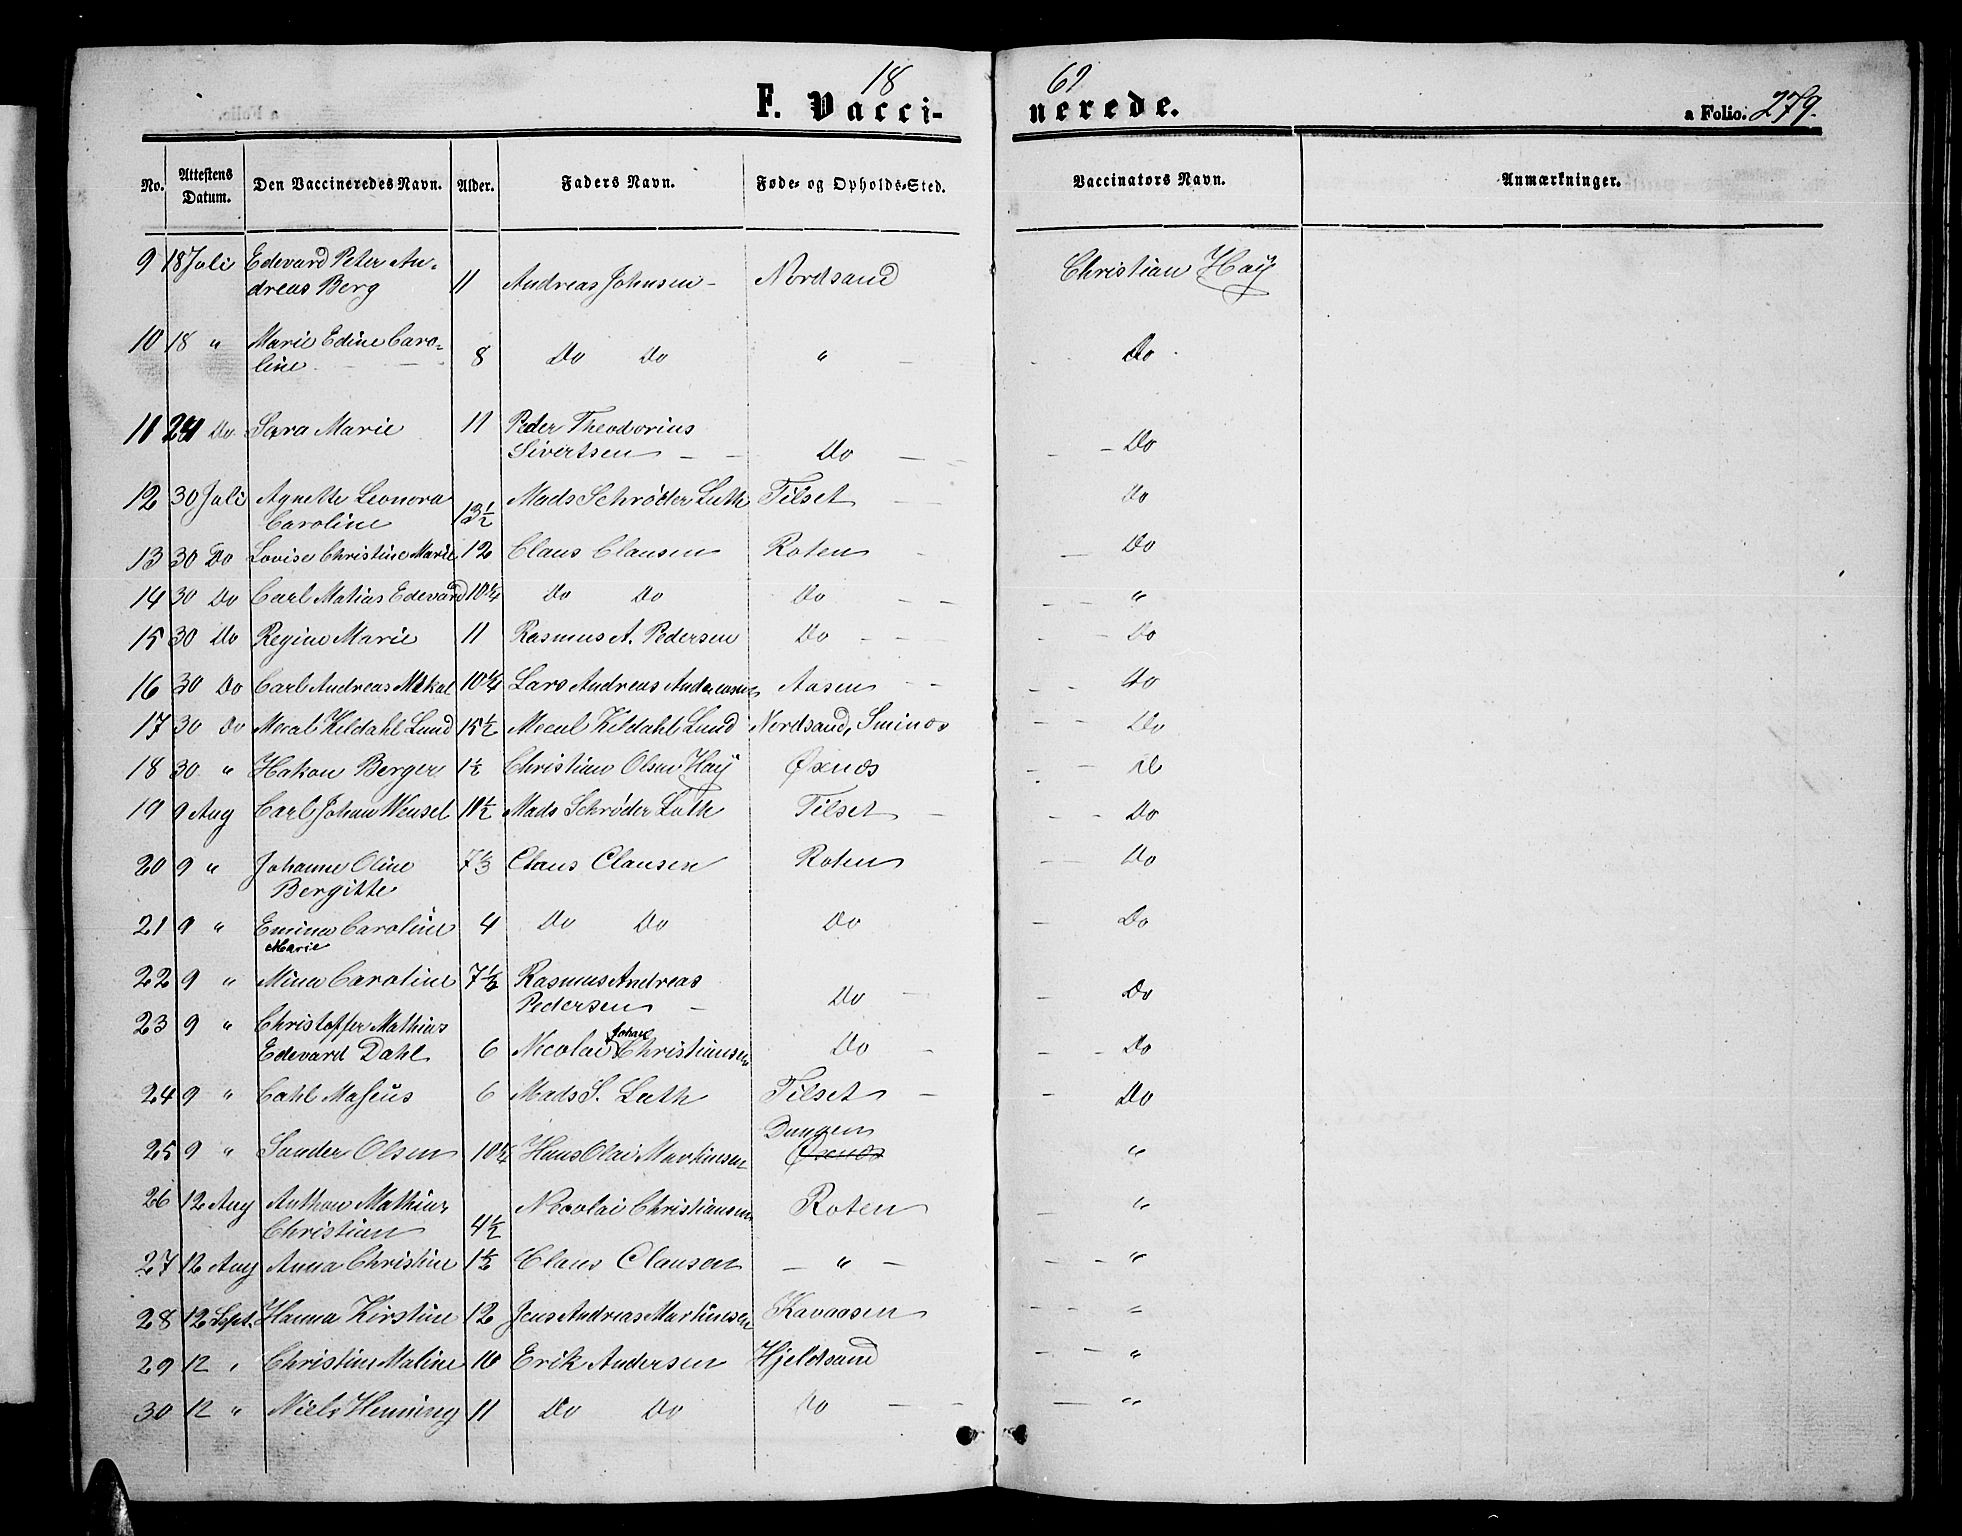 18 69
F. Vacci- nerede.
a Folio. 279.
No. Attestens Datum. Den Vaccineredes Navn. Alder. Faders Navn. Føde- og Opholds-Sted. Vaccinators Navn. Anmærkninger.
9 18 Juli Edevard Peter An- 11 Andreas Johnsen - Nordsand Christian Høy
dreas Berg
10 18 " Marie Edine Caro- 8 Do Do " - Do
line
11 24 Do Sara Marie 11 Peder Theodorius
Sivertsen - - Do - - Do
12 30 Juli Agnette Leonora 13½ Mads Schrøder Luth Tilset Do
Caroline
13 30 Do Lovise Christine Marie 12 Claus Clausen Roten - Do
14 30 Do Carl Matias Edevard 10¼ Do Do Do - - "
15 30 Do Regine Marie 11 Rasmus A. Pedersen Do - Do
16 30 Do Carl Andreas Mikal 10¼ Lars Andreas Andreasen Aasen - - Do
17 30 Do Meral Kildahl Lund 15½ Mecul Kildahl Lund Nordsand, Sminæs - - Do
18 30 " Hakon Berger 1½ Christian Olsen Høy Øxnæs - - Do
19 9 Aug Carl Johan Wensel 10½ Mads Schrøder Luth Tilset - - - Do
20 9 " Johanne Oline 7⅓ Claus Clausen Roten - - Do
Bergitte
21 9 " Emina Caroline 4 Do Do Do - Do
Marie
22 9 " Mina Caroline 7½ Rasmus Andreas
Pedersen - Do - - Do
23 9 " Christoffer Mathias
Edevard Dahl 6 Nicolai Johan Christiansen Do - - - Do
24 9 " Cahl Maseus 6 Mads S. Luth Tilset - - Do
Dungen
25 9 " Sander Olsen 10¼ Hans Olai Martinsen Øxnæs "
26 12 Aug Anthon Mathias Nicolai Christiansen Roten - "
Christian 4½
27 12 Aug Anna Christine 1½ Claus Clausen - " - - - "
28 12 Sept. Hanna Kirstine 12 Jens Andreas Martinsen Kavaasen - - "
29 12 " Christine Maline 16 Erik Andersen Hjeldsand - - "
30 12 " Niels Henning 11 Do Do Do - - - "